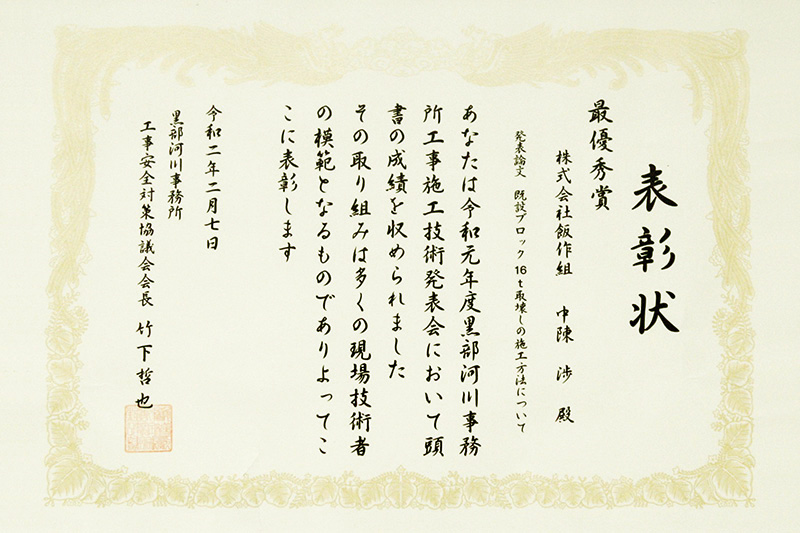 表彰状
最優秀賞
株式会社飯作組 中陳 渉 殿
発表論文 既設ブロック16t取壊しの施工方法について
あなたは令和元年度黒部河川事務
所工事施工技術発表会において頭
書の成績を収められました
その取り組みは多くの現場技術者
の模範となるものでありよってこ
こに表彰します
令和二年二月七日
黒部河川事務所
工事安全対策協議会会長 竹下哲也